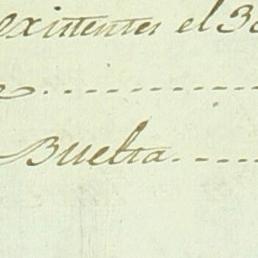 existentes el 30
Buelta.